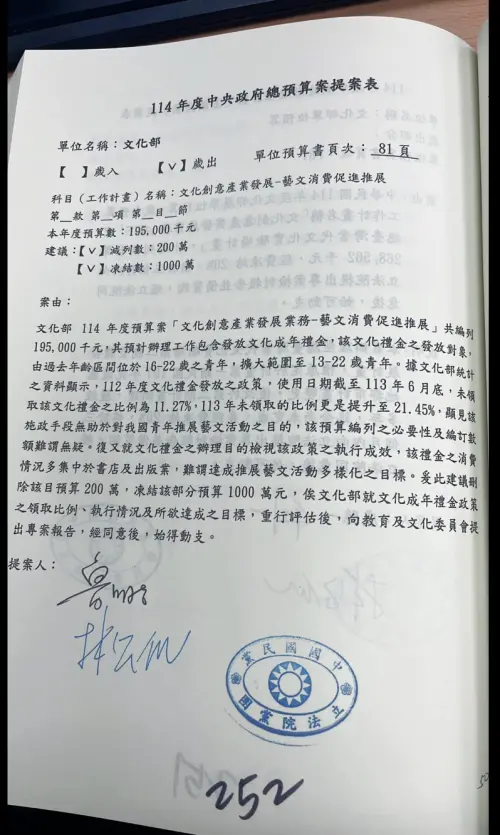 114 年度中央政府總預算案提案表
單位名稱：文化部
【 】歲入 【∨】歲出 單位預算書頁次： 81 頁
科目（工作計畫）名稱：文化創意產業發展-藝文消費促進推展
第__款 第__項 第__目__節
本年度預算數：195,000 千元
建議：【∨】減列數：200 萬
【∨】凍結數：1000 萬
案由：
文化部 114 年度預算案「文化創意產業發展業務-藝文消費促進推展」共編列
195,000 千元，其預計辦理工作包含發放文化成年禮金，該文化禮金之發放對象，
由過去年齡區間位於 16-22 歲之青年，擴大範圍至 13-22 歲青年。據文化部統計
之資料顯示，112 年度文化禮金發放之政策，使用日期截至 113 年 6 月底，未領
取該文化禮金之比例為 11.27%，113 年未領取的比例更是提升至 21.45%，顯見該
施政手段無助於對我國青年推展藝文活動之目的，該預算編列之必要性及編訂數
額難謂無疑。復又就文化禮金之辦理目的檢視該政策之執行成效，該禮金之消費
情況多集中於書店及出版業，難謂達成推展藝文活動多樣化之目標。爰此建議刪
除該目預算 200 萬，凍結該部分預算 1000 萬元，俟文化部就文化成年禮金政策
之領取比例、執行情況及所欲達成之目標，重行評估後，向教育及文化委員會提
出專案報告，經同意後，始得動支。
提案人：
中國國民黨
立法院黨團
252
50